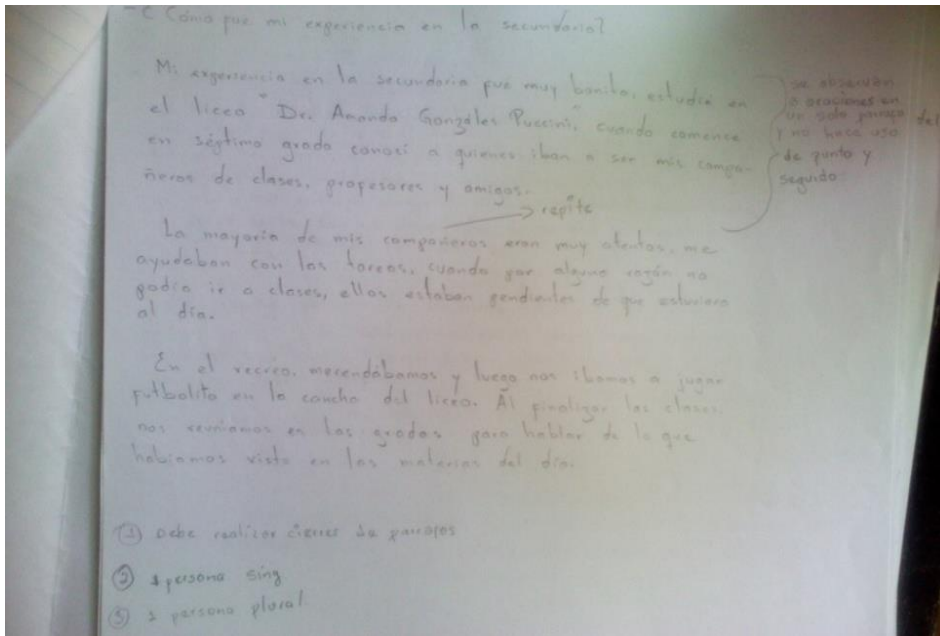 - ¿ Cómo fue mi experiencia en la secundaria?
Mi experiencia en la secundaria fue muy bonita, estudié en
el liceo "Dr. Amando Gonzáles Puccini", cuando comencé
en séptimo grado conosí a quienes iban a ser mis compa-
ñeros de clases, profesores y amigos.
se observan
oraciones en
un solo párrafo
y no hace uso del
de punto y
seguido
repite
La mayoría de mis compañeros eran muy atentos, me
ayudaban con las tareas, cuando por alguna razón no
podía ir a clases, ellos estaban pendientes de que estuviera
al día.
En el recreo, merendábamos y luego nos íbamos a jugar
futbolito en la cancha del liceo. Al finalizar las clases,
nos reuníamos en las gradas para hablar de lo que
habíamos visto en las materias del día.
① Debe realizar cierres de párrafos
② 1 persona sing
③ 1 persona plural.